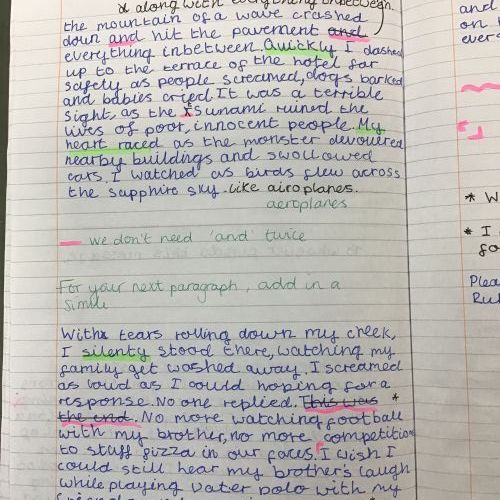 & along with everything inbetween.
the mountain of a wave crashed
down and hit the pavement and
everything inbetween. Quickly I dashed
up to the terrace of the hotel for
safety as people screamed, dogs barked
and babies cried. It was a terrible
sight, as the tsunami ruined the
lives of poor, innocent people. My
heart raced as the monster devoured
nearby buildings and swollowed
cars. I watched as birds flew across
the sapphire sky. like airoplanes.
aeroplanes
we don't need 'and' twice
For your next paragraph, add in a
simile
With tears rolling down my cheek,
I silenty stood there, watching my
family get washed away. I screamed
as loud as I could hoping for a
response. No one replied. This was *
the end. No more watching football
with my brother, no more competition
to stuff pizza in our faces. I wish I
could still hear my brother's laugh
while playing water polo with my
and
on
ever
* W
* I
Plea
Ru